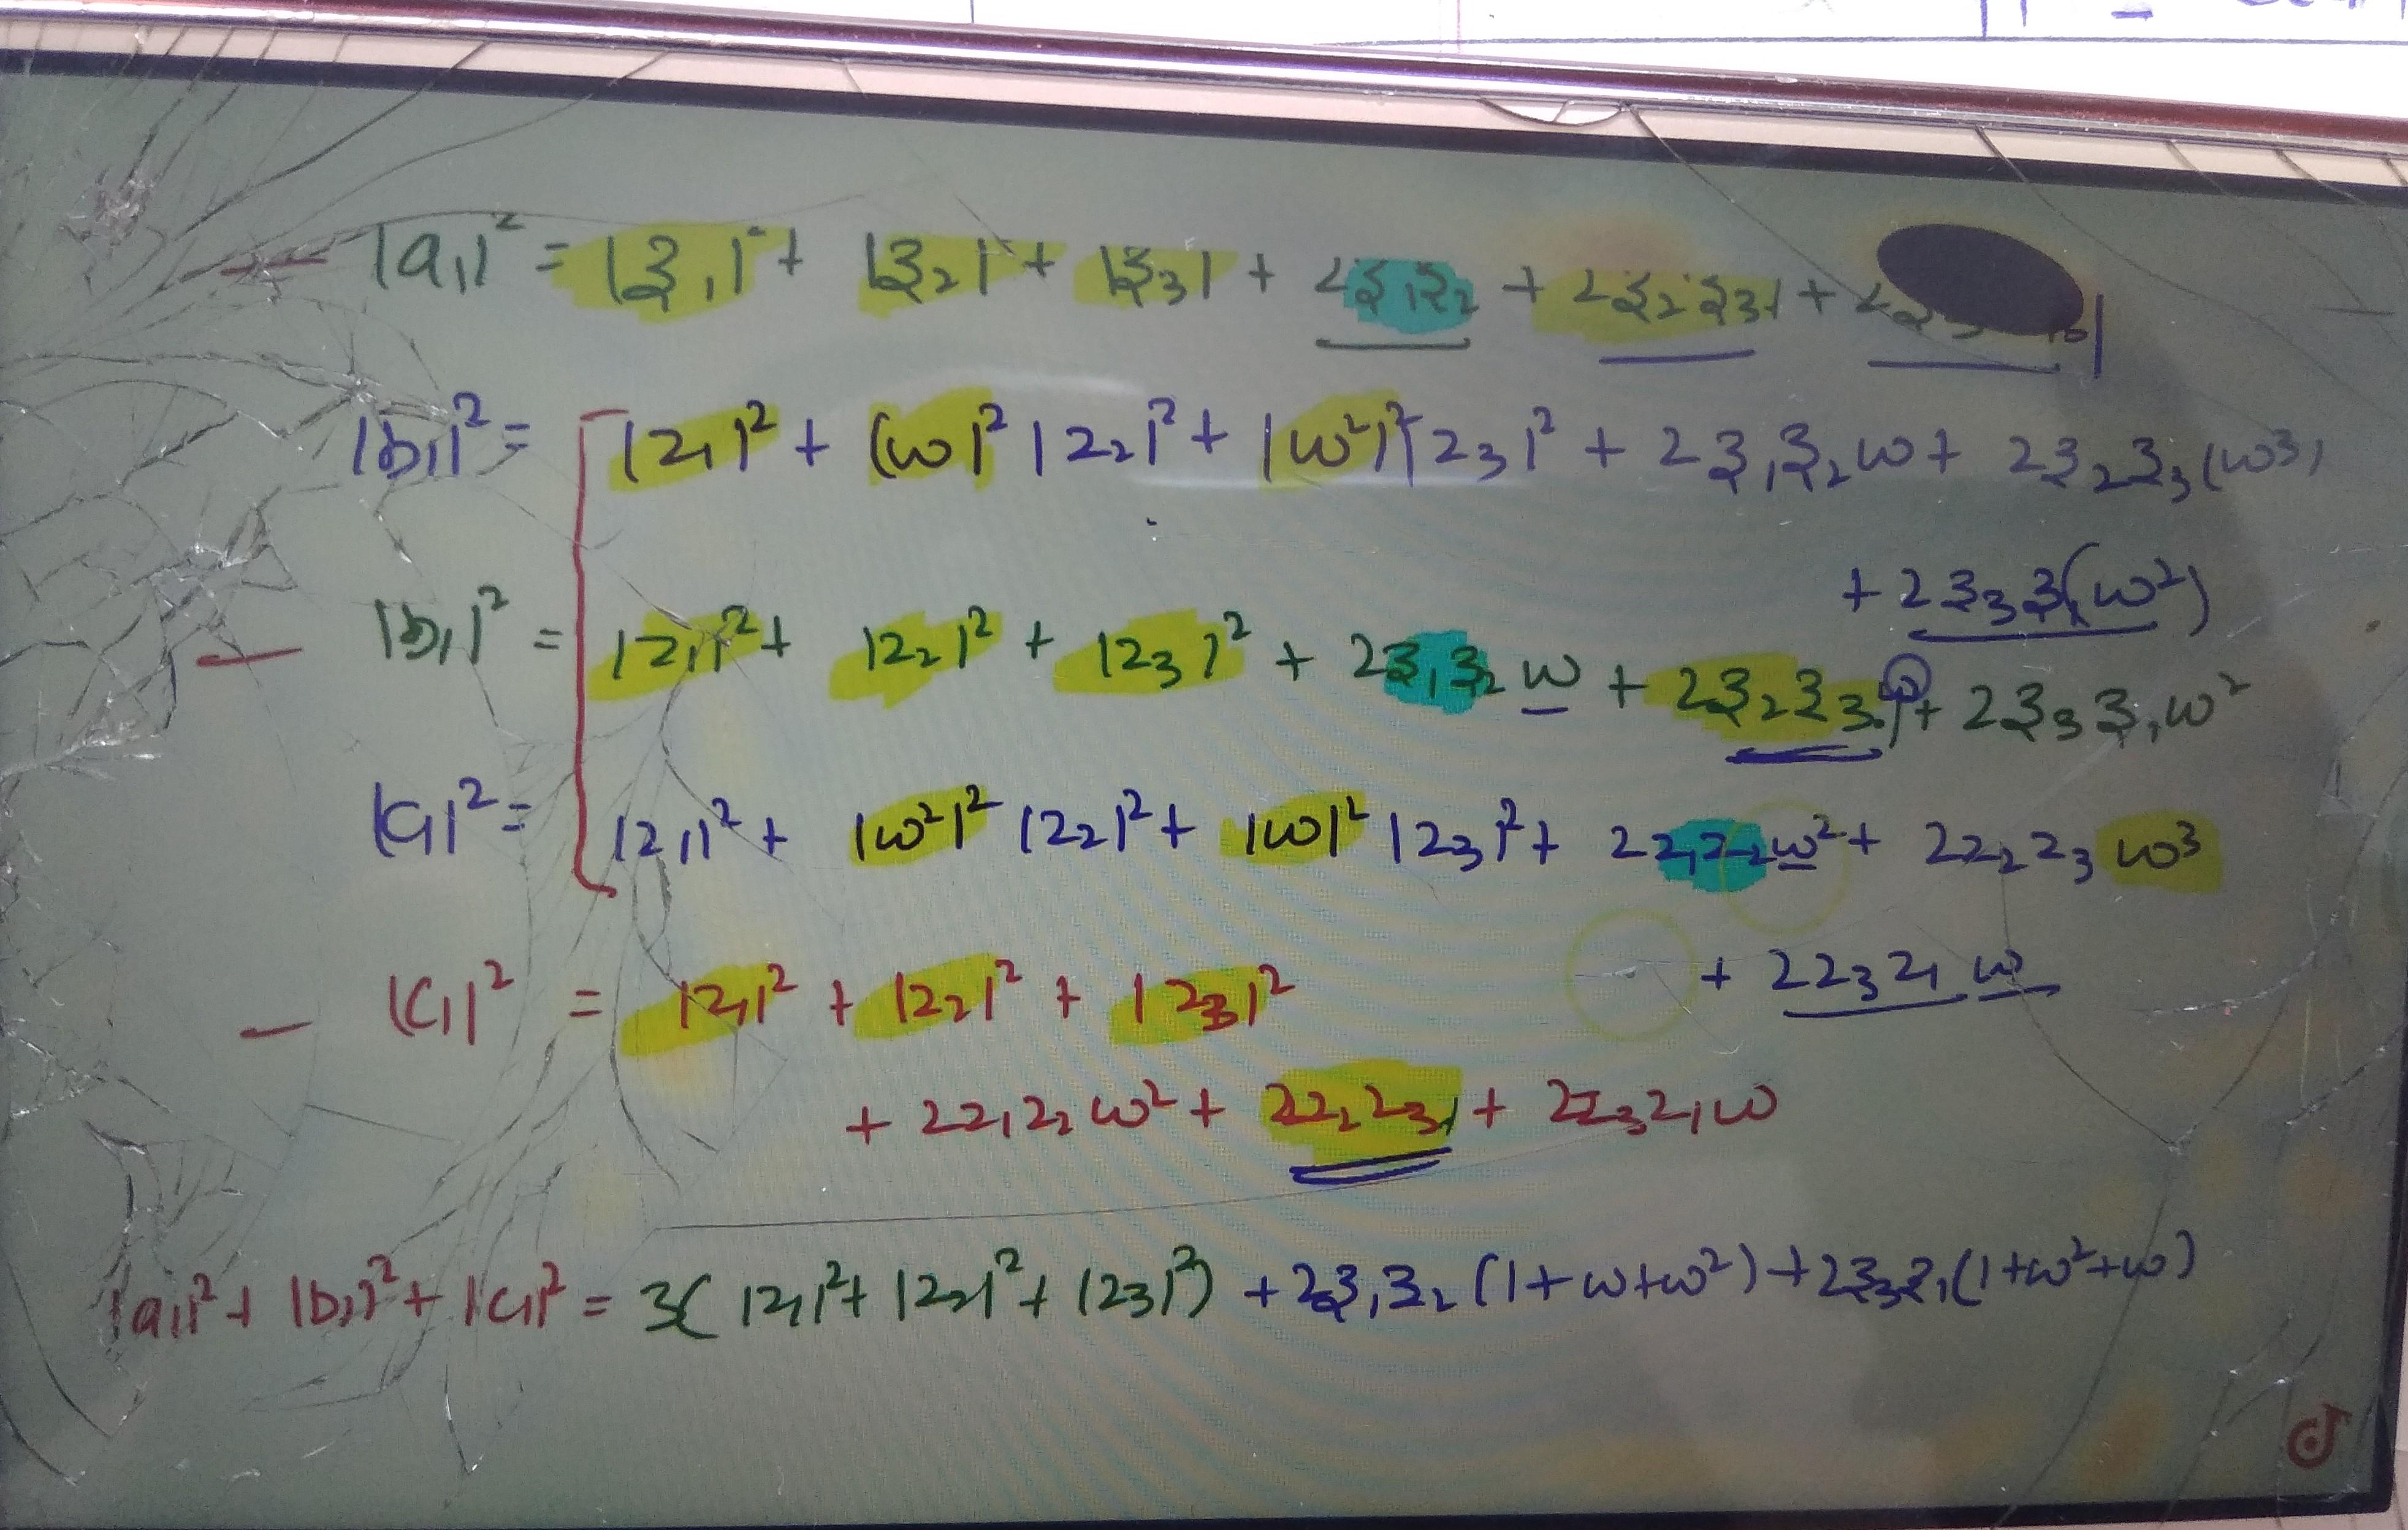 |a₁|² = |z₁|² + |z₂| + |z₃| + 2z₁z₂ + 2z₂z₃1 + 2z₃
|b₁|² = |z₁|² + |ω|² |z₂|² + |ω²|² |z₃|² + 2z₁z₂ω + 2z₂z₃(ω³)
+ 2z₃z₁(ω²)
|b₁|² = |z₁|² + |z₂|² + |z₃|² + 2z₁z₂ω + 2z₂z₃.1 + 2z₃z₁ω²
|c₁|² = |z₁|² + |ω²|² |z₂|² + |ω|² |z₃|² + 2z₁z₂ω² + 2z₂z₃ω³
+ 2z₃z₁ω
|c₁|² = |z₁|² + |z₂|² + |z₃|²
+ 2z₁z₂ω² + 2z₂z₃1 + 2z₃z₁ω
|a₁|² + |b₁|² + |c₁|² = 3(|z₁|² + |z₂|² + |z₃|²) + 2z₁z₂(1+ω+ω²) + 2z₃z₁(1+ω²+ω)